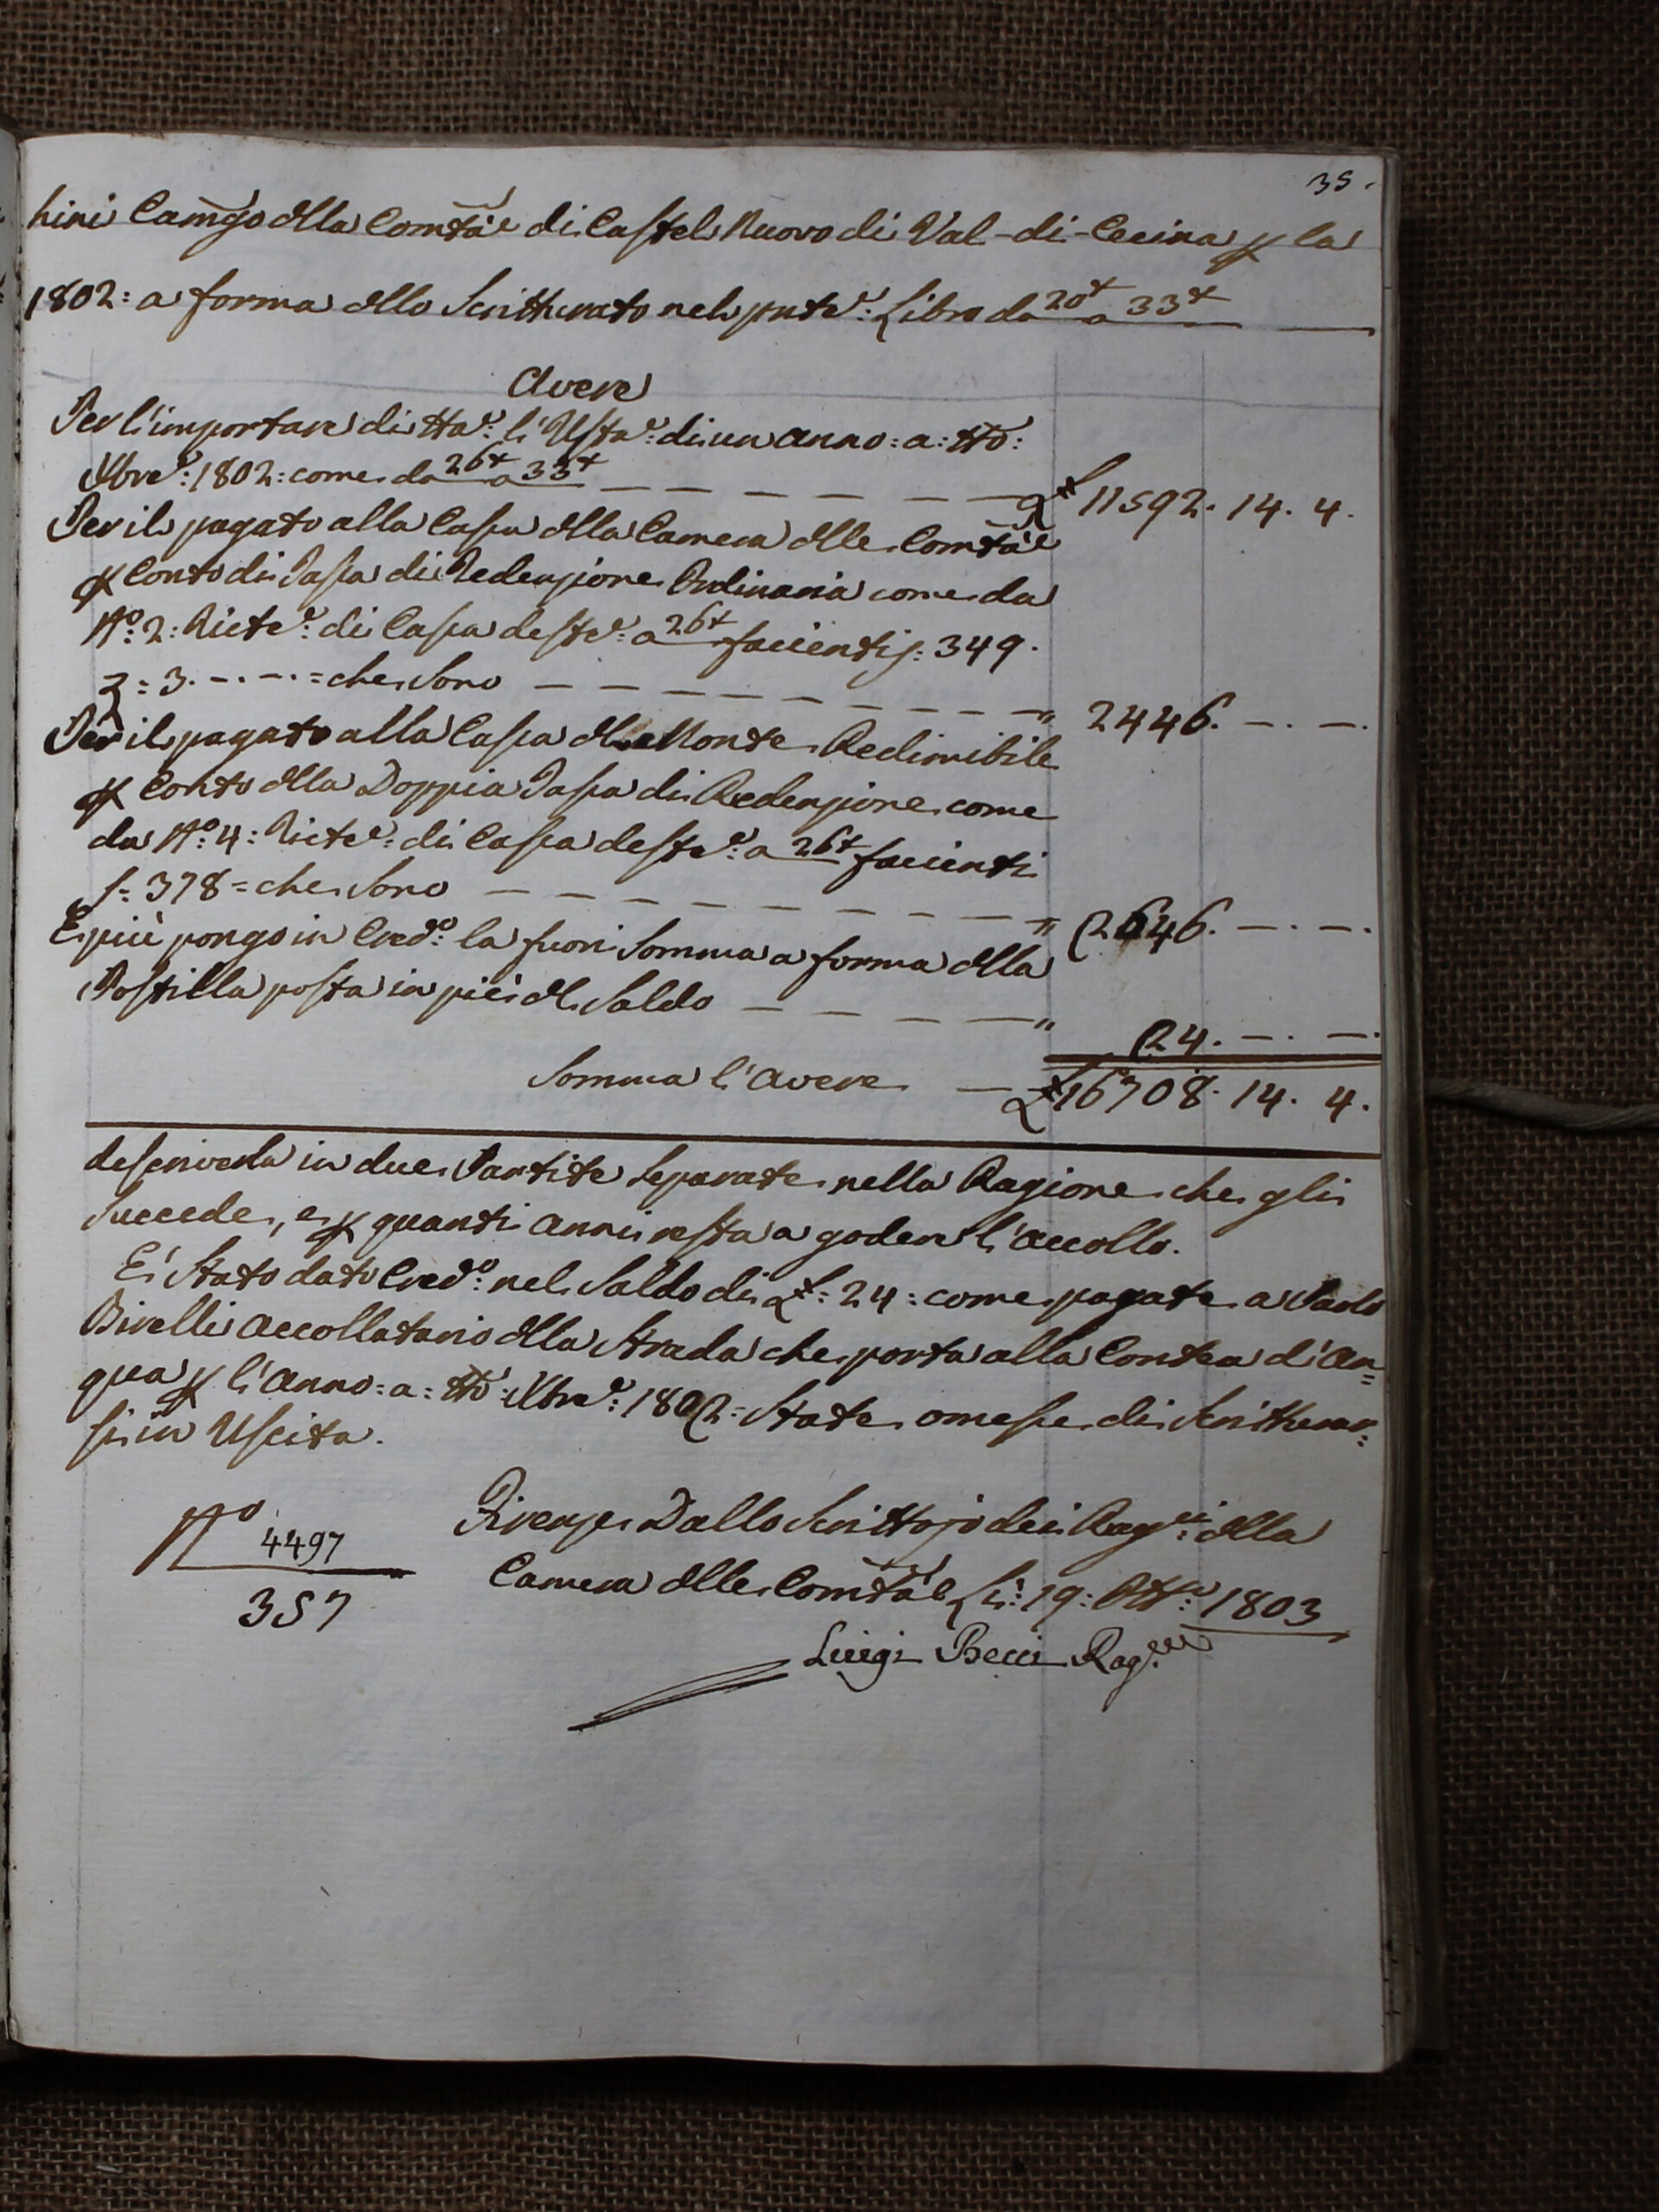 35.
hini Camgo dlla Comtà di Castel Nuovo di Val-di-Cecina p la
1802: a forma dllo Scritturato nel pnte: Libro da 20t a 33t
Avere
Per l'importare di tta: l'Usta: di un anno: a: tto:
Xbre: 1802: come da 26t a 33t £ 11592. 14. 4.
Per il pagato alla Cassa dlla Camera dlle Comtà
p Conto di Tassa di Redenzione Ordinaria come da
N.o 2: Ricte: di Cassa deste: a 26t facienti s: 349.
3 = 3. -. -. = che sono " 2446. -. -.
Per il pagato alla Cassa dl Monte Redimibile
p Conto dlla Doppia Tassa di Redenzione come
da N.o 4: Ricte: di Cassa deste: a 26t facienti
s: 378 = che sono " 2646. -. -.
E più pongo in Credo: la fuori Somma a forma dlla
Postilla posta in piè dl Saldo " 24. -. -.
Somma l'avere £ 16708. 14. 4.
descriverla in due Partite separate nella Ragione che gli
succede, e p quanti anni resta a godere l'accollo.
E' Stato dato Credo: nel Saldo di £: 24: come pagate a Paolo
Birelli accollatario dlla Strada che porta alla Contea d'An=
qua p l'anno: a: tto: Xbre: 1802: State omesse di Scritturar=
si in Uscita.
No 4497
357
Firenze Dallo Scrittojo dei Ragri: dlla
Camera dlle Comtà Li: 19: Ott: 1803
Luigi Becci Rag.